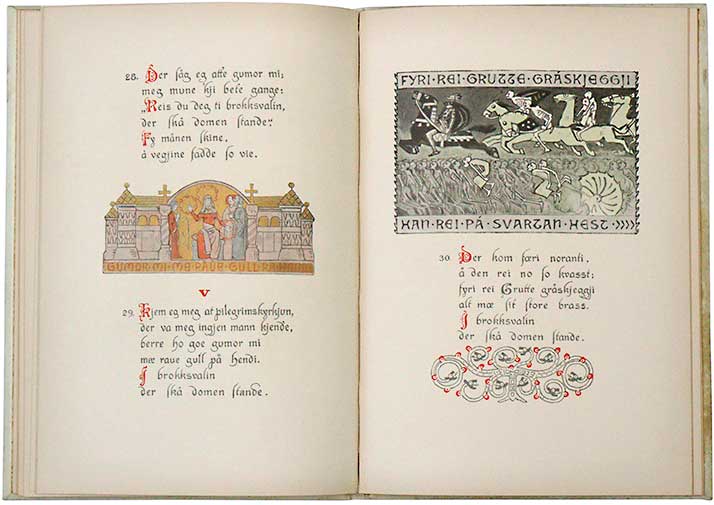 28. Der såg eg atte gumor mi;
meg mune kji bete gange:
„Reis du deg ti brokksvalin,
der skå domen stande."
Fy månen skine,
å vegjine fadde so vie.
GUMOR MI ME RAUE GULL
V
29. Kjem eg meg at pilegrimskyrkjun,
der va meg ingjen mann kjende,
berre ho goe gumor mi
mæ raue gull på hendi.
I brokksvalin
der skå domen stande.
FYRI REI GRUTTE GRÅSKJEGGJI
HAN REI PÅ SVARTAN HEST
30. Der kom færi noranti,
å den rei no so kvasst;
fyri rei Grutte gråskjeggji
alt mæ sit store brass.
I brokksvalin
der skå domen stande.